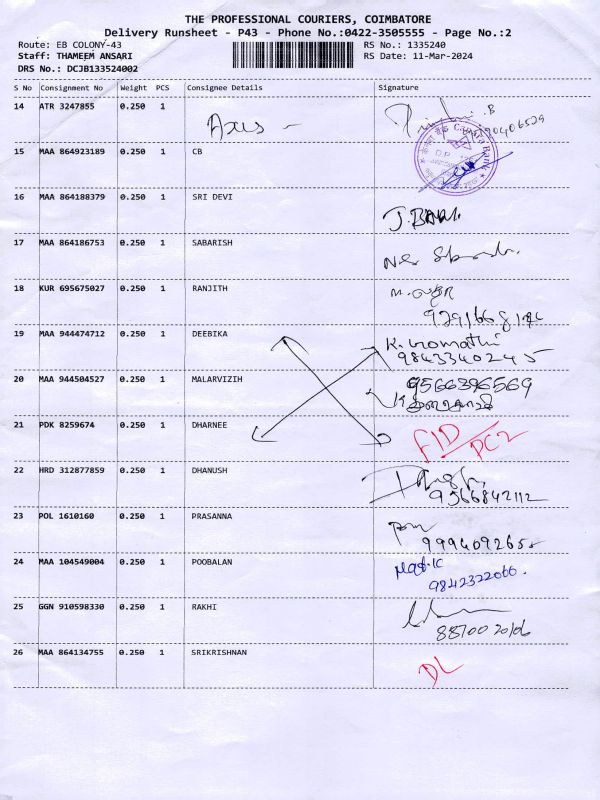 THE PROFESSIONAL COURIERS, COIMBATORE
Delivery Runsheet - P43 - Phone No.:0422-3505555 - Page No.:2
Route: EB COLONY-43 RS No.: 1335240
Staff: THAMEEM ANSARI RS Date: 11-Mar-2024
DRS No.: DCJB133524002
S No Consignment No Weight PCS Consignee Details Signature
14 ATR 3247855 0.250 1
Axis -
15 MAA 864923189 0.250 1 CB
16 MAA 864188379 0.250 1 SRI DEVI
17 MAA 864186753 0.250 1 SABARISH
18 KUR 695675027 0.250 1 RANJITH
19 MAA 944474712 0.250 1 DEEBIKA K. Gomathi
9843340245
20 MAA 944504527 0.250 1 MALARVIZIH 9566396569
21 PDK 8259674 0.250 1 DHARNEE FID/PC2
22 HRD 312877859 0.250 1 DHANUSH
9566842112
23 POL 1610160 0.250 1 PRASANNA
24 MAA 104549004 0.250 1 POOBALAN
9842322066.
25 GGN 910598330 0.250 1 RAKHI
26 MAA 864134755 0.250 1 SRIKRISHNAN DL